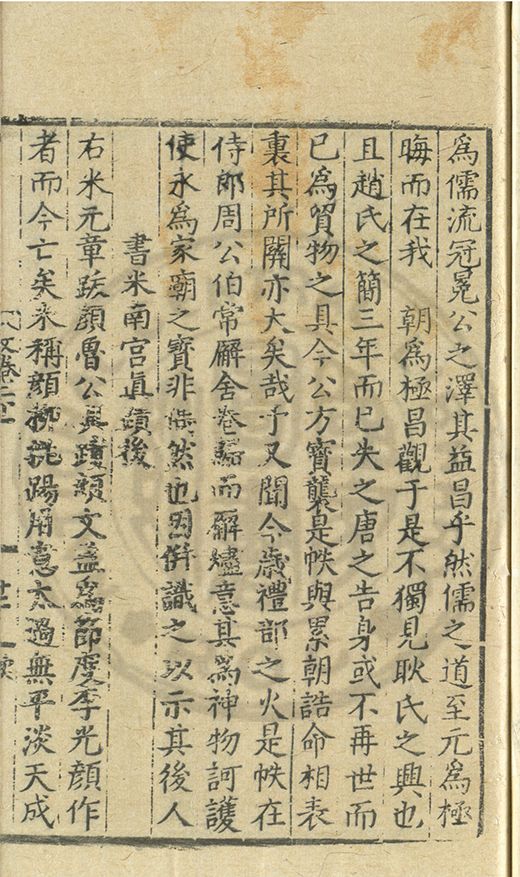 為儒流冠冕公之澤其益昌乎然儒之道至元為極
晦而在我　朝為極昌觀于是不獨見耿氏之興也
且趙氏之簡三年而已失之唐之告身或不再世而
已為質物之具今公方寶襲是帙與累朝誥命相表
裏其所關亦大矣哉予又聞今歲禮部之火是帙在
侍郎周公伯常廨舍卷歸而廨燼意其為神物訶護
使永為家廟之寶非偶然也因併識之以示其後人
書米南宮真蹟後
右米元章跋顏魯公與蹟文盖為節度李光顏作
者而今亡矣米稱顏柳挑踢用意太過無平淡天成
文卷二十